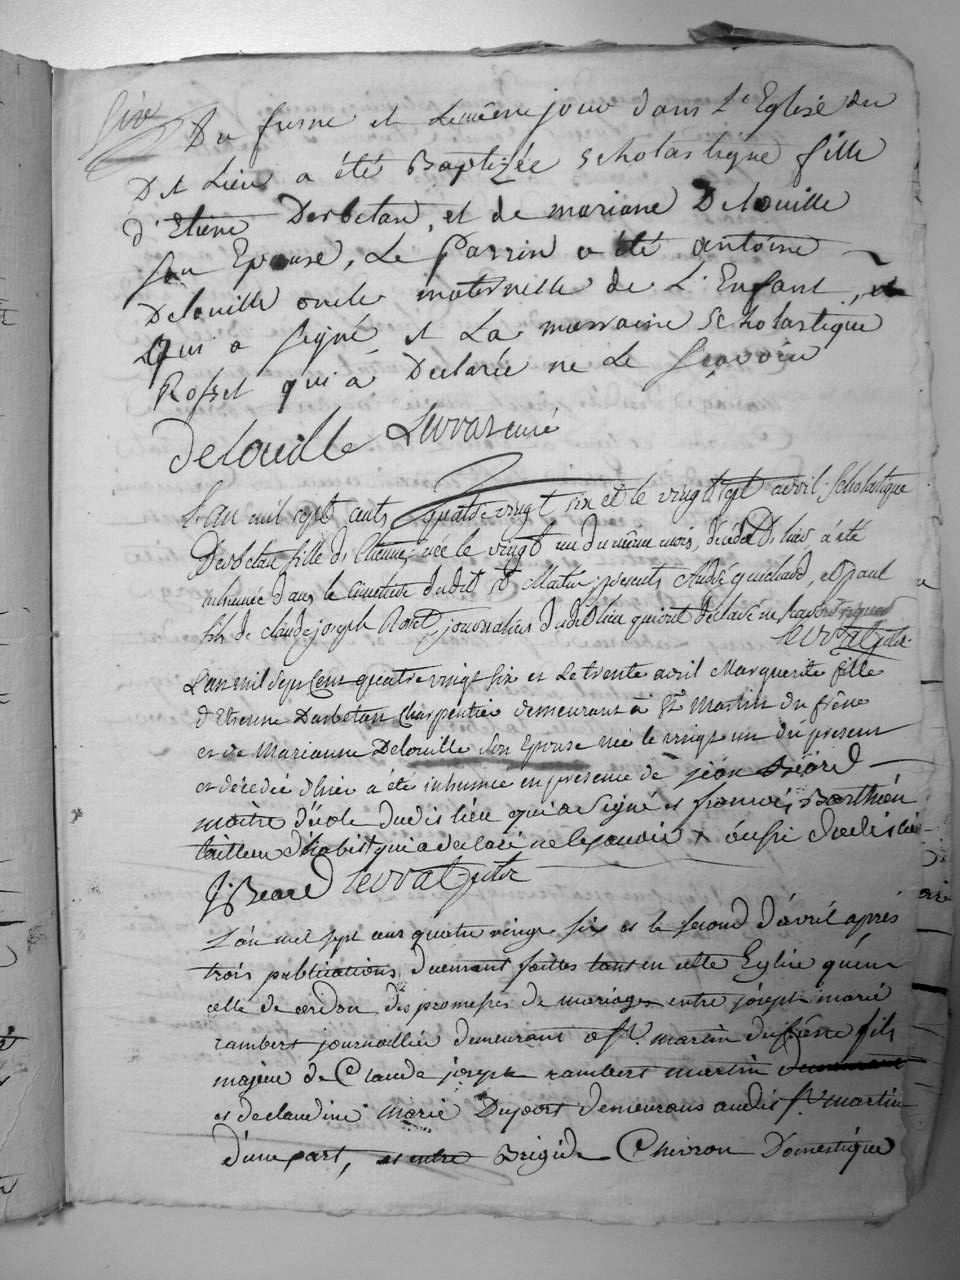 Du fresne et Lemême jour dans L'Eglise du
Dit Lieu a été Baptizée Scholastique fille
d'Etiene Desbetan, et de mariane Delouille
son Epouse, Le Parrin a été antoine
Delouille oncle maternelle de L'Enfant, et
Qui a signé et La marraine Scholastique
Rosset qui a Declarée ne Le sçavoir
Delouille curé
L'an mil sept cents quatre vingt six et le vingt sept avril Scholastique
Desbetan fille d'Etienne, née le vingt un du même mois, décédée d'hier a été
inhumée dans le cimetiere dudit St Martin, presents André guichard, et paul
fils de claude joseph Roset journaliers dudit lieu qui ont déclaré ne sçavoir signer
L'an mil Sept Cent quatre vingt Six et Le trente avril Marguerite fille
d'Etienne Darbetan Charpentier demeurant à St Martin du frêne
et de Marianne Delouille Son Epouse née le vingt un du present
et décédée d'hier a été inhumée en presence de jean Béard
maitre d'école dudit lieu qui a Signé et francois Barthen
tailleur d'habist qui a declaré ne le savoir aussi dudit lieu
J: Beard
L'an mil sept cens quatre vingt six et le second d'avril après
trois publications duement faittes tant en cette Eglise qu'en
celle de cerdon des promesses de mariage entre joseph marie
rambert journaillié demeurant a St. martin du frêne fils
majeur de Claude joseph rambert martin
et de claudine Marie Duport demeurans audit St martin
d'une part, et entre Brigide Chivron Domestique